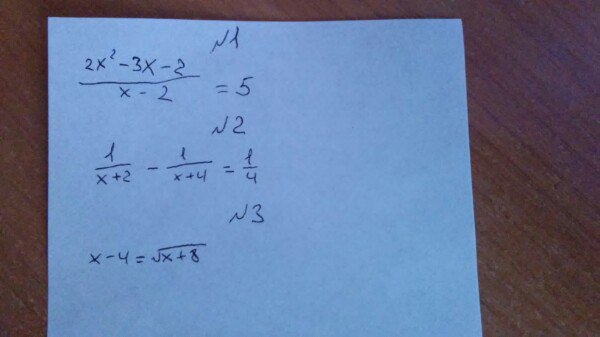 №1
(2x² - 3x - 2)/(x - 2) = 5
№2
1/(x+2) - 1/(x+4) = 1/4
№3
x - 4 = √(x+8)